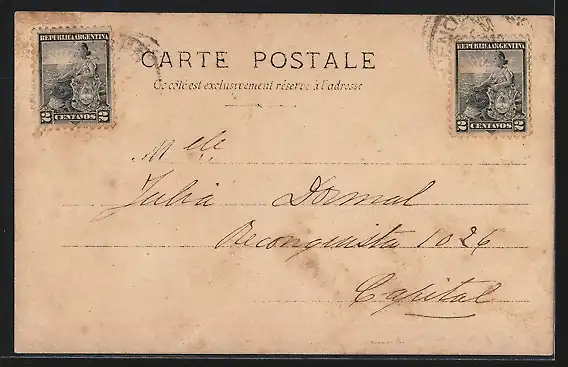 REPUBLICA ARGENTINA
2 CENTAVOS 2
CARTE POSTALE
Ce côté est exclusivement réservé à l'adresse
REPUBLICA ARGENTINA
2 CENTAVOS 2
Melle
Julia Dormal
Reconquista 1026
Capital